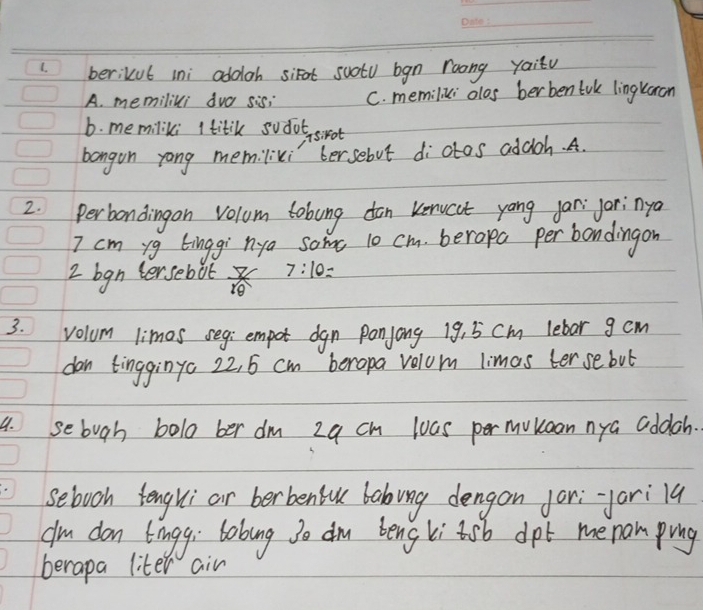 Date:
1. berikut ini adalah sifat suatu bgn ruang yaitu
A. memiliki dua sisi C. memiliki alas berbentuk lingkaran
b. memiliki 1 titik sudut
bangun yang memiliki sifat tersebut di atas adalah A.
2. Perbandingan volum tabung dan Kerucut yang jari jari nya
7 cm yg tinggi nya sama 10 cm. berapa per bandingan
2 bgn tersebut 7:10=
3. volum limas segi empat dgn panjang 19,5 cm lebar 9 cm
dan tingginya 22,5 cm berapa volum limas tersebut
4. sebuah bola ber dm 29 cm luas permukaan nya adalah..
sebuah tengki air berbentuk tabung dengan jari-jari 14
dm dan tinggi tabung 30 dm tengki tsb dpt menampung
berapa liter air